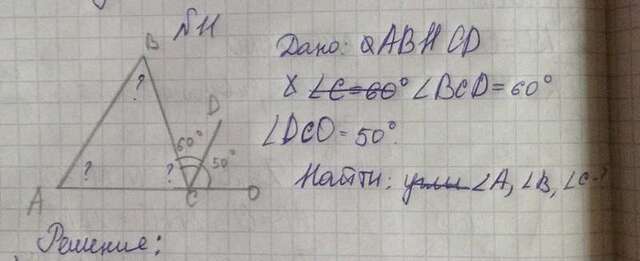 №11
Дано: AB ∥ CD
∠C=60° ∠BCD=60°
∠DCO=50°.
Найти: углы ∠A, ∠B, ∠C-?
B
?
D
60°
50°
?
?
A
C
O
Решение: